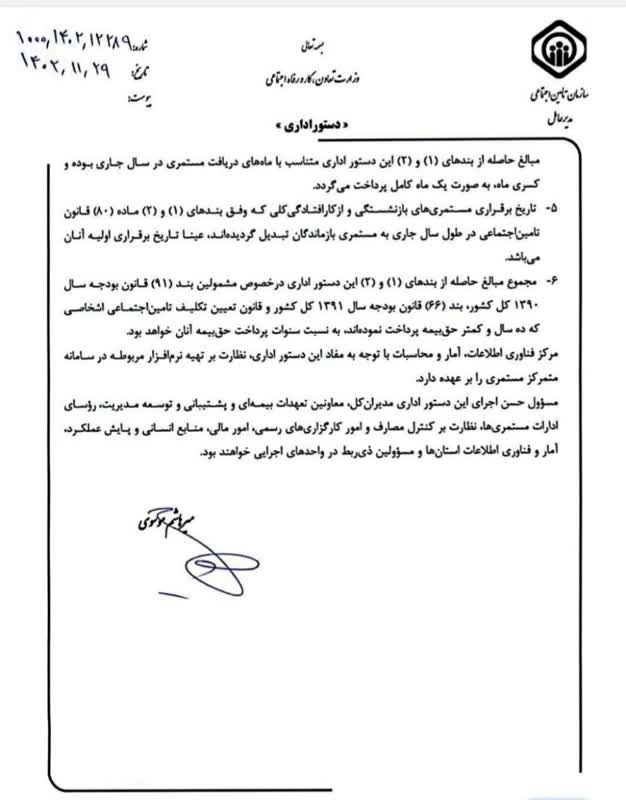 بسمه تعالی
وزارت تعاون، کار و رفاه اجتماعی
سازمان تامین اجتماعی
مدیرعامل
شماره: ۱۰۰۰,۱۴۰۲,۱۲۲۸۹
تاریخ: ۱۴۰۲,۱۱,۲۹
پیوست:
« دستور اداری »
مبالغ حاصله از بندهای (۱) و (۲) این دستور اداری متناسب با ماه‌های دریافت مستمری در سال جاری بوده و
کسری ماه، به صورت یک ماه کامل پرداخت می‌گردد.
۵- تاریخ برقراری مستمری‌های بازنشستگی و ازکارافتادگی‌کلی که وفق بندهای (۱) و (۲) ماده (۸۰) قانون
تامین‌اجتماعی در طول سال جاری به مستمری بازماندگان تبدیل گردیده‌اند، عیناً تاریخ برقراری اولیه آنان
می‌باشد.
۶- مجموع مبالغ حاصله از بندهای (۱) و (۲) این دستور اداری درخصوص مشمولین بند (۹۱) قانون بودجه سال
۱۳۹۰ کل کشور، بند (۶۶) قانون بودجه سال ۱۳۹۱ کل کشور و قانون تعیین تکلیف تامین‌اجتماعی اشخاصی
که ده سال و کمتر حق‌بیمه پرداخت نموده‌اند، به نسبت سنوات پرداخت حق‌بیمه آنان خواهد بود.
مرکز فناوری اطلاعات، آمار و محاسبات با توجه به مفاد این دستور اداری، نظارت بر تهیه نرم‌افزار مربوطه در سامانه
متمرکز مستمری را بر عهده دارد.
مسؤول حسن اجرای این دستور اداری مدیران‌کل، معاونین تعهدات بیمه‌ای و پشتیبانی و توسعه مدیریت، رؤسای
ادارات مستمری‌ها، نظارت بر کنترل مصارف و امور کارگزاری‌های رسمی، امور مالی، منابع انسانی و پایش عملکرد،
آمار و فناوری اطلاعات استان‌ها و مسؤولین ذی‌ربط در واحدهای اجرایی خواهند بود.
میرهاشم موسوی